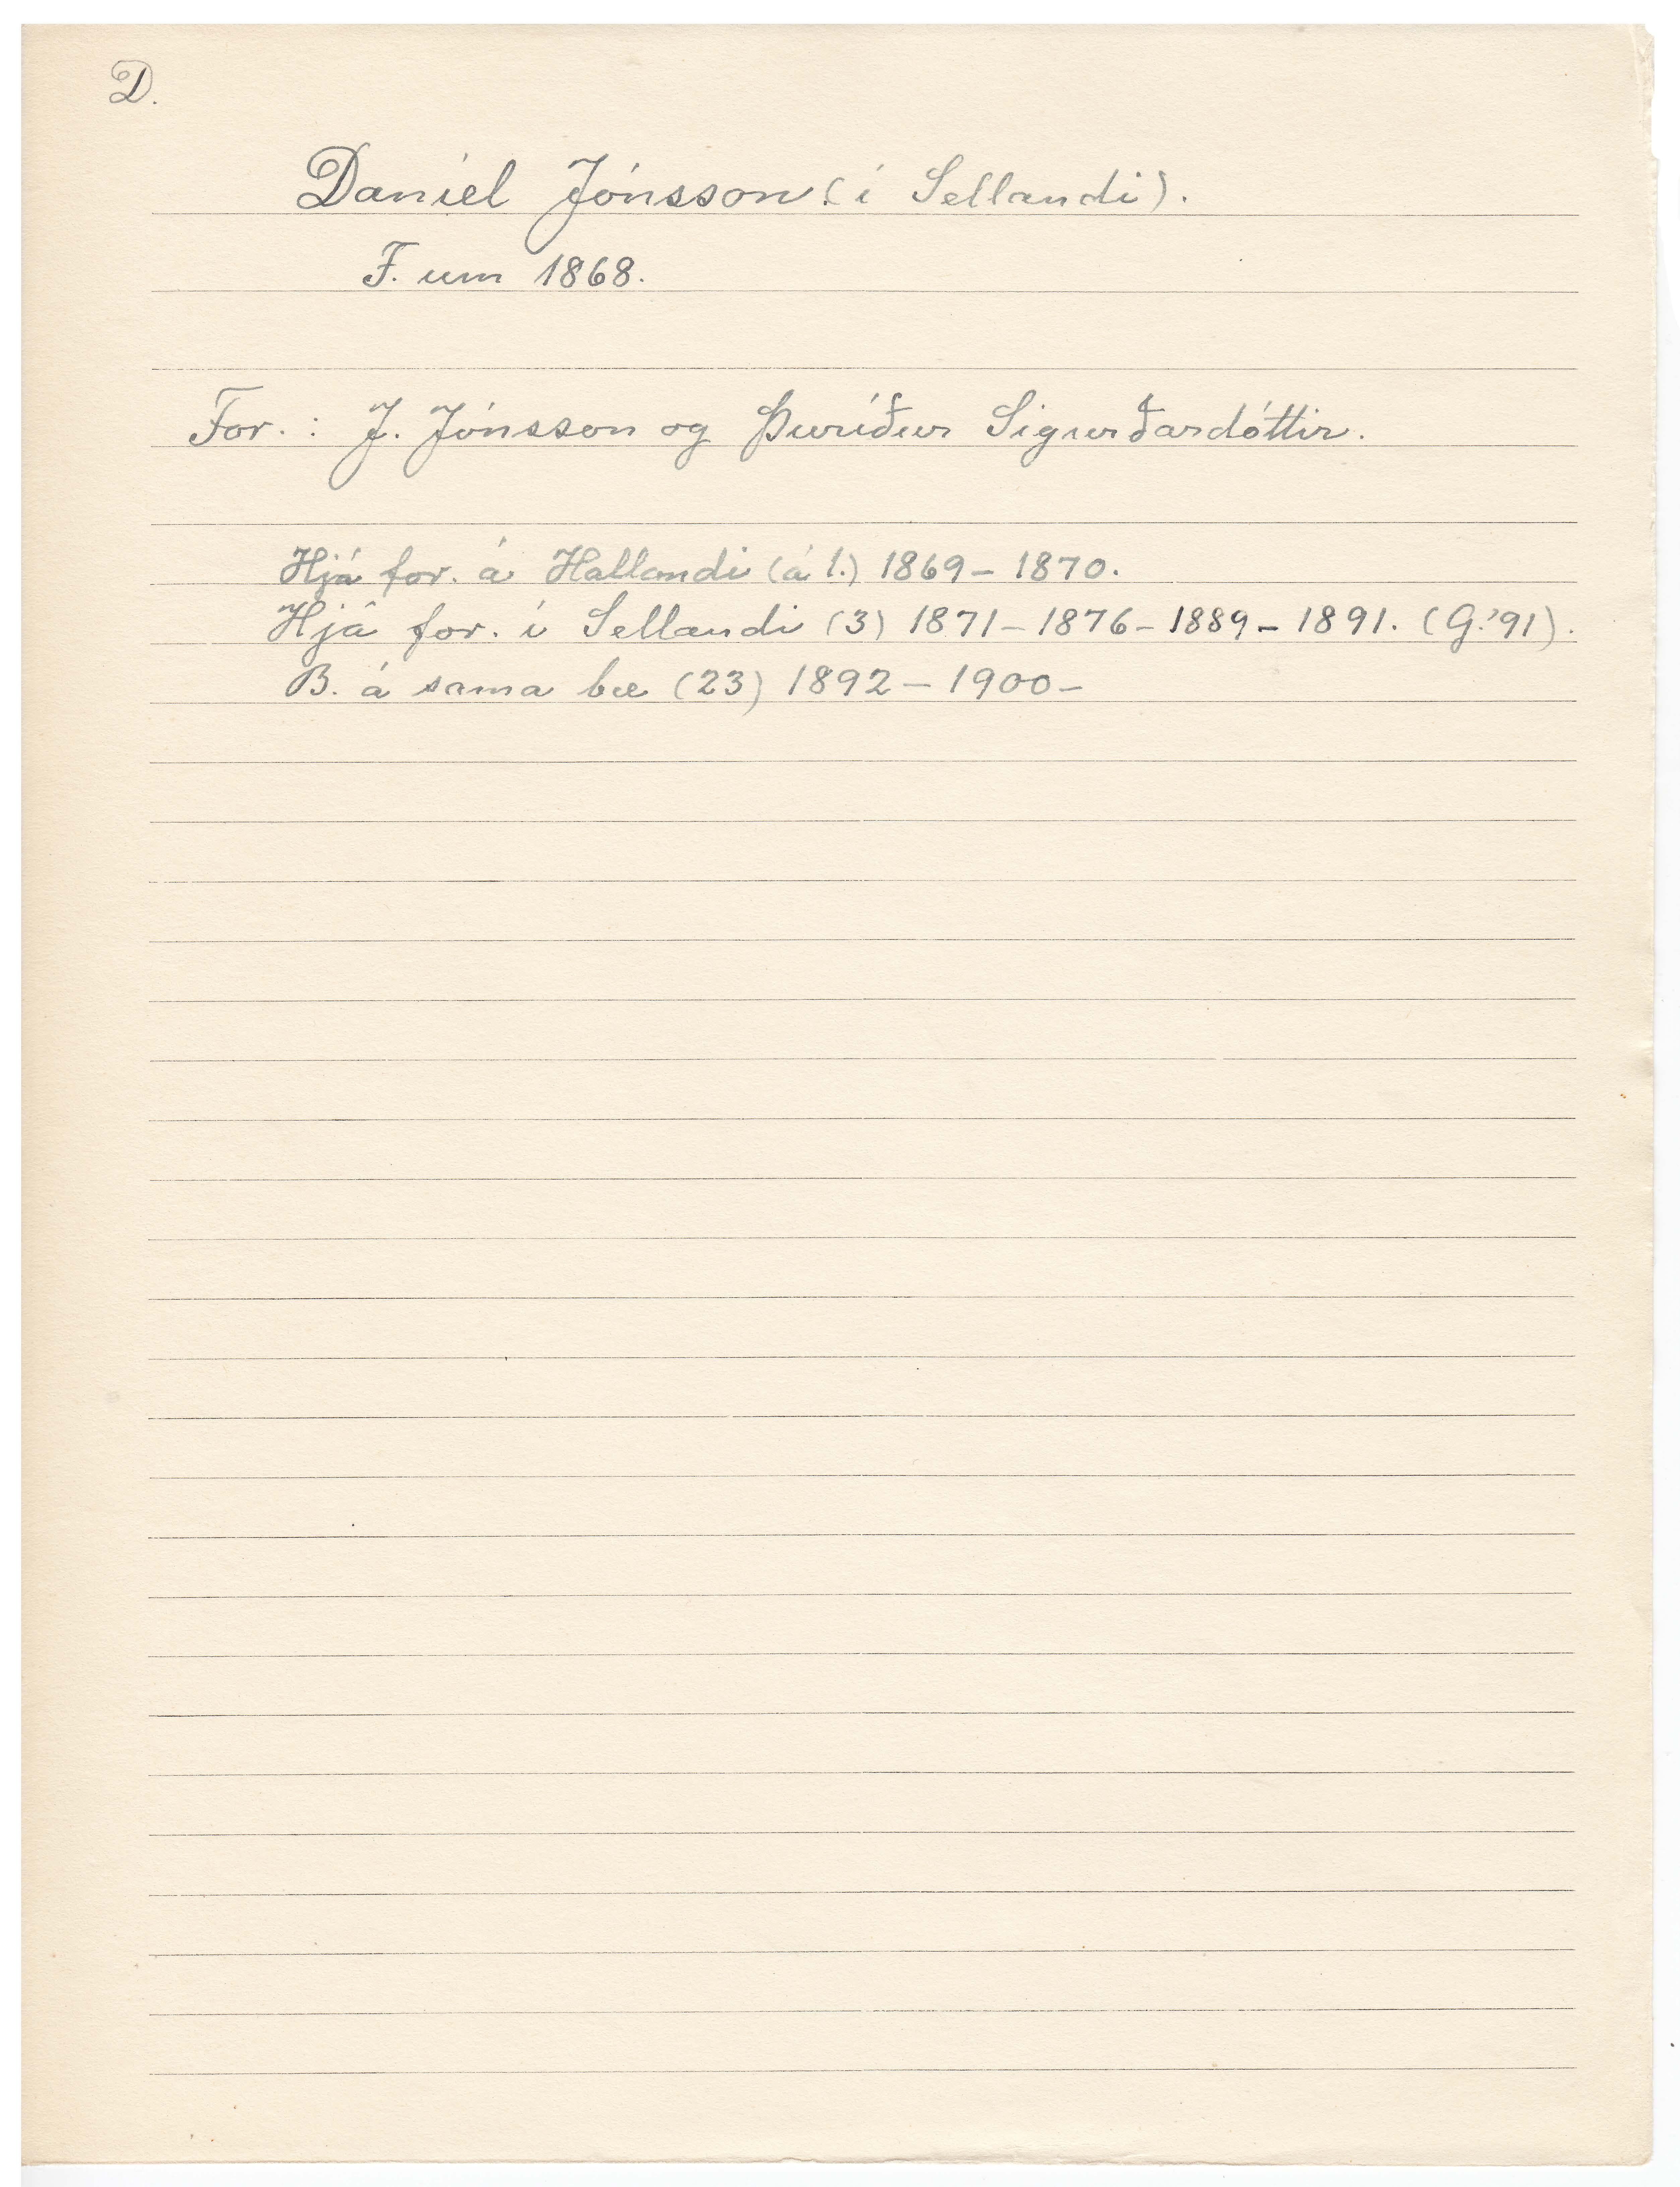 D.
Daníel Jónsson. (í Sellandi).
F. um 1868.
For. : J. Jónsson og Þuríður Sigurðardóttir.
Hjá for. á Hallandi (á 1.) 1869 – 1870.
Hjá for. í Sellandi (3) 1871 – 1876 – 1889 – 1891. (G. '91).
B. á sama bæ (23) 1892 – 1900 –